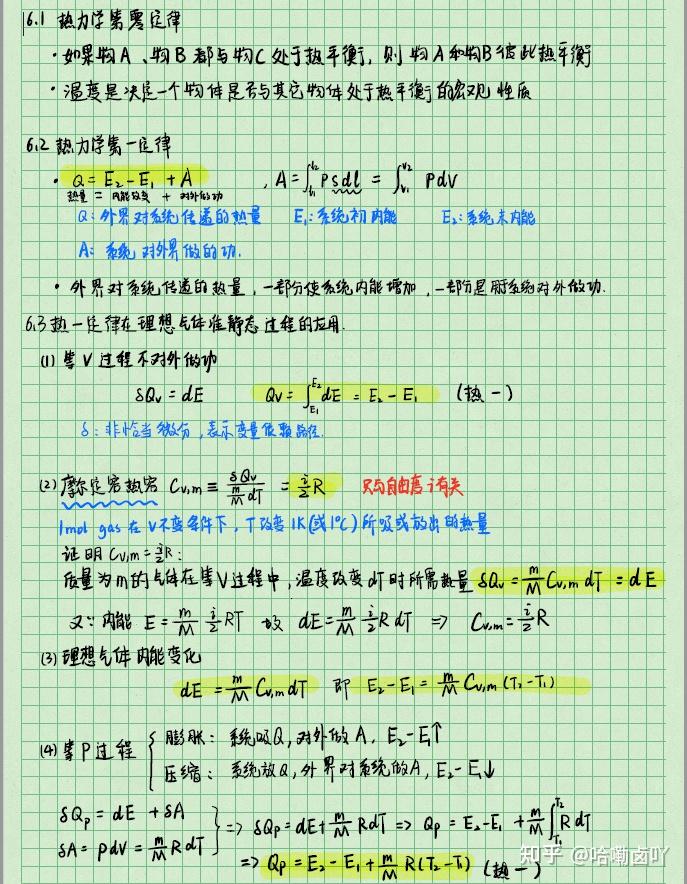 6.1 热力学第零定律
· 如果物A、物B都与物C处于热平衡, 则物A和物B彼此热平衡
· 温度是决定一个物体是否与其它物体处于热平衡的宏观性质
6.2 热力学第一定律
· Q = E₂-E₁ + A , A = ∫_{V₁}^{V₂} PSdl = ∫_{V₁}^{V₂} PdV
热量 = 内能改变 + 对外做功
Q: 外界对系统传递的热量 E₁: 系统初内能 E₂: 系统末内能
A: 系统对外界做的功.
· 外界对系统传递的热量, 一部分使系统内能增加, 一部分是用系统对外做功.
6.3 热一定律在理想气体准静态过程的应用.
(1) 等V过程不对外做功
δQv = dE Qv = ∫_{E₁}^{E₂} dE = E₂-E₁ (热一)
δ: 非恰当微分, 表示变量依赖路径.
(2) 摩尔定容热容 Cv,m ≡ δQv / (m/M dT) = i/2 R 只与自由度i有关
1mol gas 在V不变条件下, T改变1K(或1℃)所吸或放出的热量
证明 Cv,m = i/2 R:
质量为m的气体在等V过程中, 温度改变dT时所需热量 δQv = m/M Cv,m dT = dE
又∵ 内能 E = m/M i/2 RT 故 dE = m/M i/2 R dT ⇒ Cv,m = i/2 R
(3) 理想气体内能变化
dE = m/M Cv,m dT 即 E₂-E₁ = m/M Cv,m (T₂-T₁)
(4) 等P过程 { 膨胀: 系统吸Q, 对外做A, E₂-E₁↑
压缩: 系统放Q, 外界对系统做A, E₂-E₁↓
δQp = dE + δA
δA = pdV = m/M R dT } => δQp = dE + m/M R dT => Qp = E₂-E₁ + m/M ∫_{T₁}^{T₂} R dT
=> Qp = E₂-E₁ + m/M R(T₂-T₁) (热一)
知乎 @哈嘞卤吖